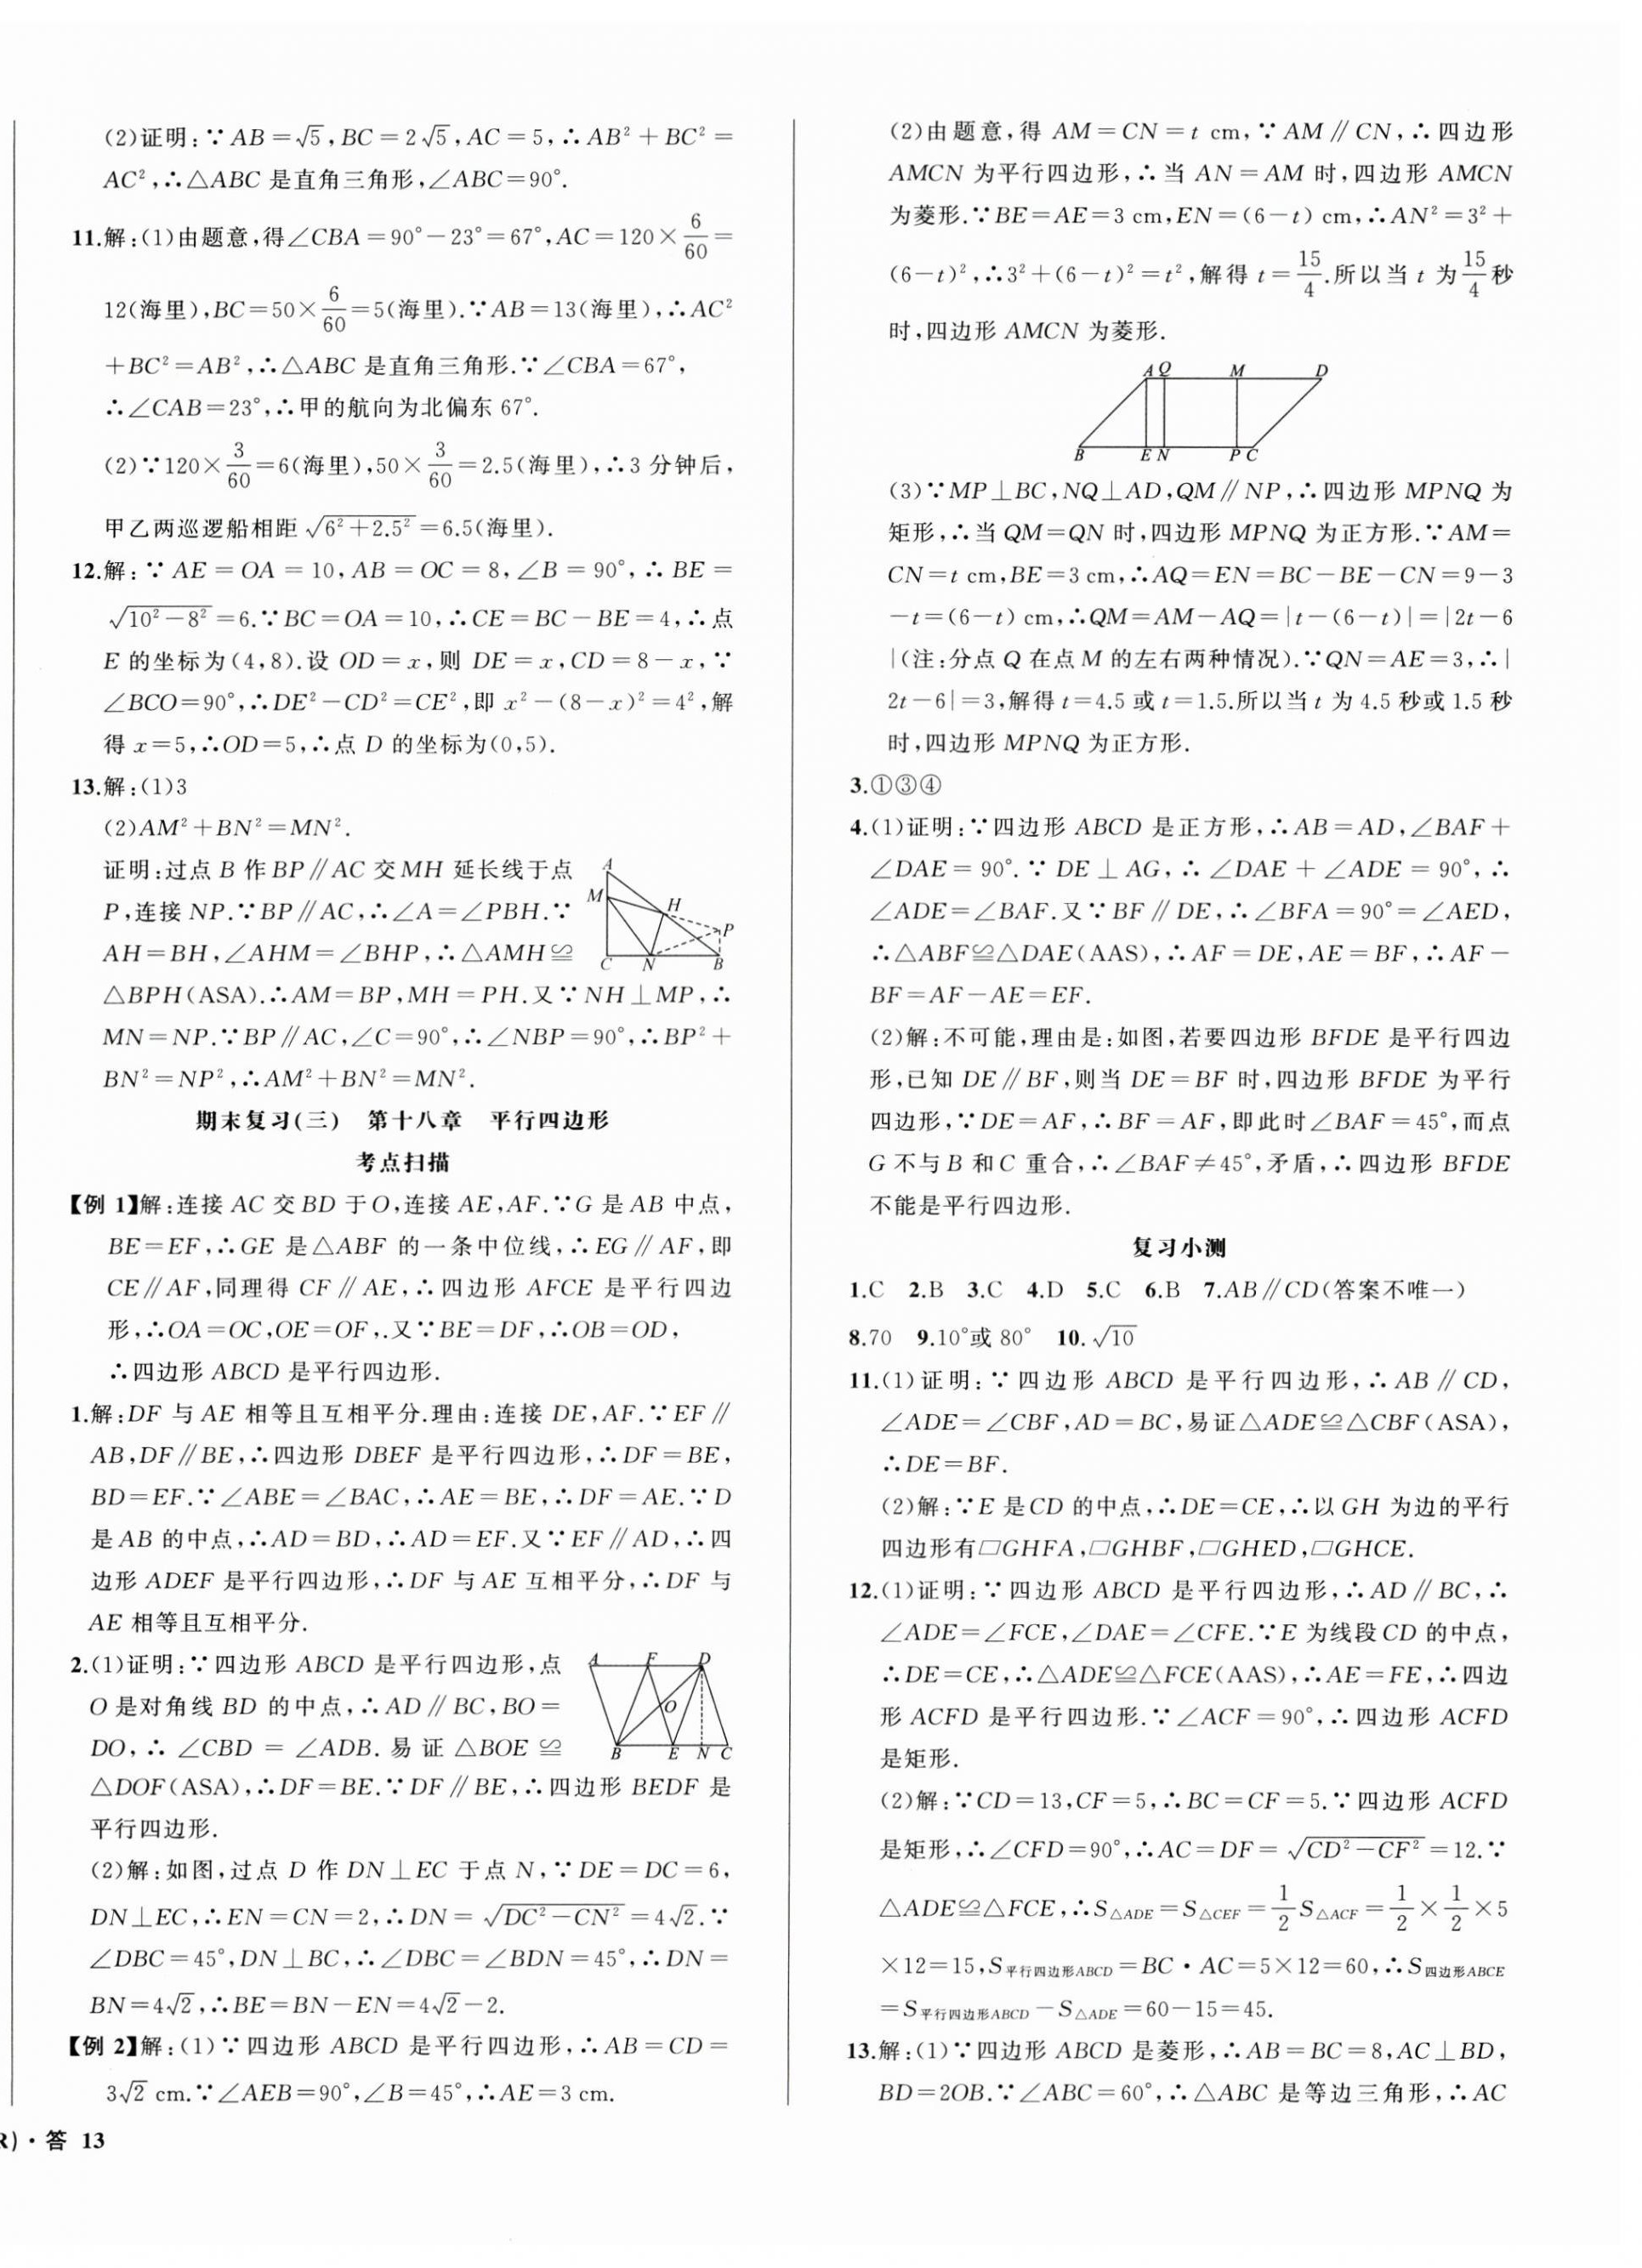 (2)证明:∵AB=√5,BC=2√5,AC=5,∴AB²+BC²=
AC²,∴△ABC 是直角三角形,∠ABC=90°.
11.解:(1)由题意,得∠CBA=90°-23°=67°,AC=120×6/60=
12(海里),BC=50×6/60=5(海里).∵AB=13(海里),∴AC²
+BC²=AB²,∴△ABC 是直角三角形.∵∠CBA=67°,
∴∠CAB=23°,∴甲的航向为北偏东 67°.
(2)∵120×3/60=6(海里),50×3/60=2.5(海里),∴3 分钟后,
甲乙两巡逻船相距 √(6²+2.5²)=6.5(海里).
12.解:∵AE=OA=10,AB=OC=8,∠B=90°,∴BE=
√(10²-8²)=6.∵BC=OA=10,∴CE=BC-BE=4,∴点
E 的坐标为(4,8).设 OD=x,则 DE=x,CD=8-x,∵
∠BCO=90°,∴DE²-CD²=CE²,即 x²-(8-x)²=4²,解
得 x=5,∴OD=5,∴点 D 的坐标为(0,5).
13.解:(1)3
(2)AM²+BN²=MN².
证明:过点 B 作 BP∥AC 交 MH 延长线于点
P,连接 NP.∵BP∥AC,∴∠A=∠PBH.∵
AH=BH,∠AHM=∠BHP,∴△AMH≌
A
M
H
P
C
N
B
△BPH(ASA).∴AM=BP,MH=PH.又∵NH⊥MP,∴
MN=NP.∵BP∥AC,∠C=90°,∴∠NBP=90°,∴BP²+
BN²=NP²,∴AM²+BN²=MN².
期末复习(三) 第十八章 平行四边形
考点扫描
【例 1】解:连接 AC 交 BD 于 O,连接 AE,AF.∵G 是 AB 中点,
BE=EF,∴GE 是△ABF 的一条中位线,∴EG∥AF,即
CE∥AF,同理得 CF∥AE,∴四边形 AFCE 是平行四边
形,∴OA=OC,OE=OF,.又∵BE=DF,∴OB=OD,
∴四边形 ABCD 是平行四边形.
1.解:DF 与 AE 相等且互相平分.理由:连接 DE,AF.∵EF∥
AB,DF∥BE,∴四边形 DBEF 是平行四边形,∴DF=BE,
BD=EF.∵∠ABE=∠BAC,∴AE=BE,∴DF=AE.∵D
是 AB 的中点,∴AD=BD,∴AD=EF.又∵EF∥AD,∴四
边形 ADEF 是平行四边形,∴DF 与 AE 互相平分,∴DF 与
AE 相等且互相平分.
2.(1)证明:∵四边形 ABCD 是平行四边形,点
O 是对角线 BD 的中点,∴AD∥BC,BO=
DO,∴∠CBD=∠ADB.易证△BOE≌
A
F
D
O
B
E
N
C
△DOF(ASA),∴DF=BE.∵DF∥BE,∴四边形 BEDF 是
平行四边形.
(2)解:如图,过点 D 作 DN⊥EC 于点 N,∵DE=DC=6,
DN⊥EC,∴EN=CN=2,∴DN=√(DC²-CN²)=4√2.∵
∠DBC=45°,DN⊥BC,∴∠DBC=∠BDN=45°,∴DN=
BN=4√2,∴BE=BN-EN=4√2-2.
【例 2】解:(1)∵四边形 ABCD 是平行四边形,∴AB=CD=
3√2 cm.∵∠AEB=90°,∠B=45°,∴AE=3 cm.
R)·答 13
(2)由题意,得 AM=CN=t cm,∵AM∥CN,∴四边形
AMCN 为平行四边形,∴当 AN=AM 时,四边形 AMCN
为菱形.∵BE=AE=3 cm,EN=(6-t) cm,∴AN²=3²+
(6-t)²,∴3²+(6-t)²=t²,解得 t=15/4.所以当 t 为15/4秒
时,四边形 AMCN 为菱形.
A Q M D
B E N P C
(3)∵MP⊥BC,NQ⊥AD,QM∥NP,∴四边形 MPNQ 为
矩形,∴当 QM=QN 时,四边形 MPNQ 为正方形.∵AM=
CN=t cm,BE=3 cm,∴AQ=EN=BC-BE-CN=9-3
-t=(6-t) cm,∴QM=AM-AQ=|t-(6-t)|=|2t-6
|(注:分点 Q 在点 M 的左右两种情况).∵QN=AE=3,∴|
2t-6|=3,解得 t=4.5 或 t=1.5.所以当 t 为 4.5 秒或 1.5 秒
时,四边形 MPNQ 为正方形.
3.①③④
4.(1)证明:∵四边形 ABCD 是正方形,∴AB=AD,∠BAF+
∠DAE=90°.∵DE⊥AG,∴∠DAE+∠ADE=90°,∴
∠ADE=∠BAF.又∵BF∥DE,∴∠BFA=90°=∠AED,
∴△ABF≌△DAE(AAS),∴AF=DE,AE=BF,∴AF-
BF=AF-AE=EF.
(2)解:不可能,理由是:如图,若要四边形 BFDE 是平行四边
形,已知 DE∥BF,则当 DE=BF 时,四边形 BFDE 为平行
四边形,∵DE=AF,∴BF=AF,即此时∠BAF=45°,而点
G 不与 B 和 C 重合,∴∠BAF≠45°,矛盾,∴四边形 BFDE
不能是平行四边形.
复习小测
1.C 2.B 3.C 4.D 5.C 6.B 7.AB∥CD(答案不唯一)
8.70 9.10°或 80° 10.√10
11.(1)证明:∵四边形 ABCD 是平行四边形,∴AB∥CD,
∠ADE=∠CBF,AD=BC,易证△ADE≌△CBF(ASA),
∴DE=BF.
(2)解:∵E 是 CD 的中点,∴DE=CE,∴以 GH 为边的平行
四边形有▱GHFA,▱GHBF,▱GHED,▱GHCE.
12.(1)证明:∵四边形 ABCD 是平行四边形,∴AD∥BC,∴
∠ADE=∠FCE,∠DAE=∠CFE.∵E 为线段 CD 的中点,
∴DE=CE,∴△ADE≌△FCE(AAS),∴AE=FE,∴四边
形 ACFD 是平行四边形.∵∠ACF=90°,∴四边形 ACFD
是矩形.
(2)解:∵CD=13,CF=5,∴BC=CF=5.∵四边形 ACFD
是矩形,∴∠CFD=90°,∴AC=DF=√(CD²-CF²)=12.∵
△ADE≌△FCE,∴S△ADE=S△CEF=1/2S△ACF=1/2×1/2×5
×12=15,S平行四边形ABCD=BC·AC=5×12=60,∴S四边形ABCE
=S平行四边形ABCD-S△ADE=60-15=45.
13.解:(1)∵四边形 ABCD 是菱形,∴AB=BC=8,AC⊥BD,
BD=2OB.∵∠ABC=60°,∴△ABC 是等边三角形,∴AC